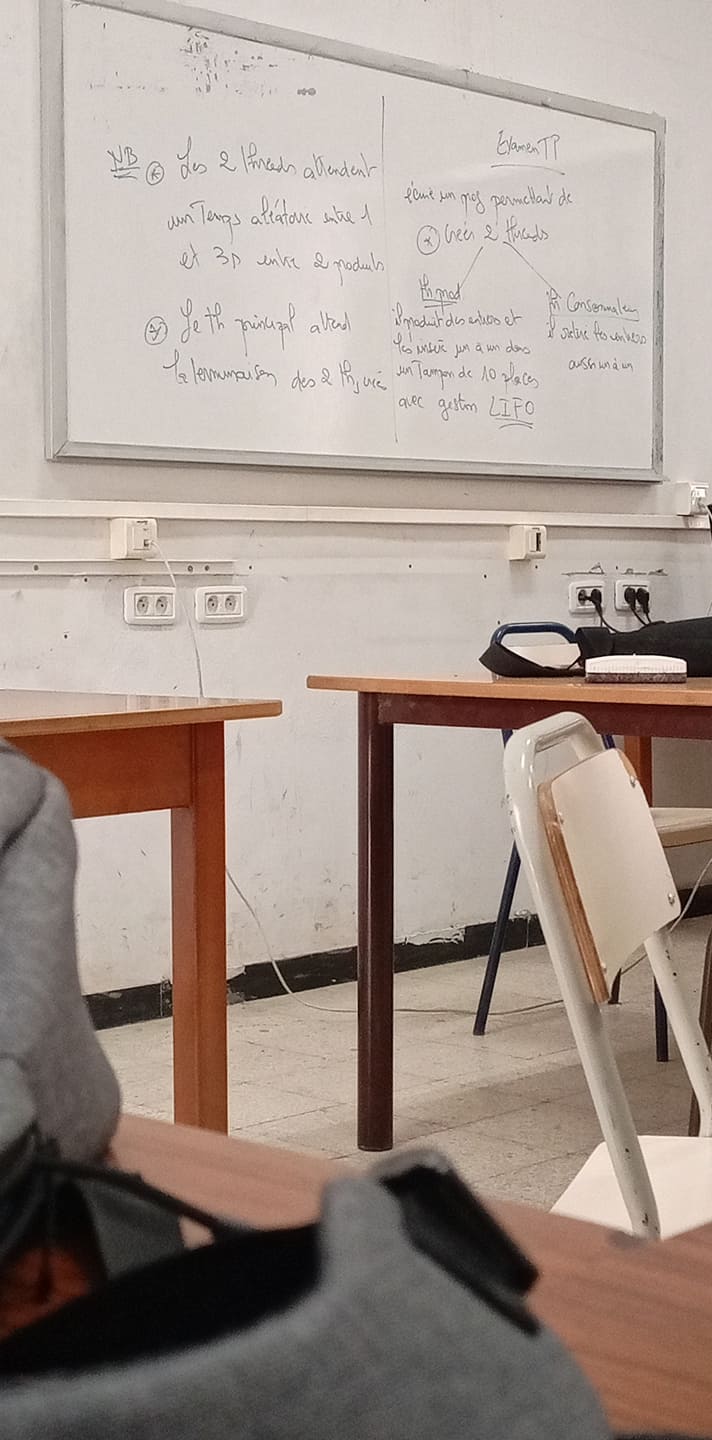 NB * Les 2 threads attendent
un Temps aléatoire entre 1
et 3s entre 2 produits
* Le th principal attend
la terminaison des 2 th, créé
Examen TP
écrire un prog permettant de
* Créer 2 threads
th prod
il produit des entiers et
les insère un à un dans
un Tampon de 10 places
avec gestion LIFO
th Consommateur
il retire les entiers
aussi un à un